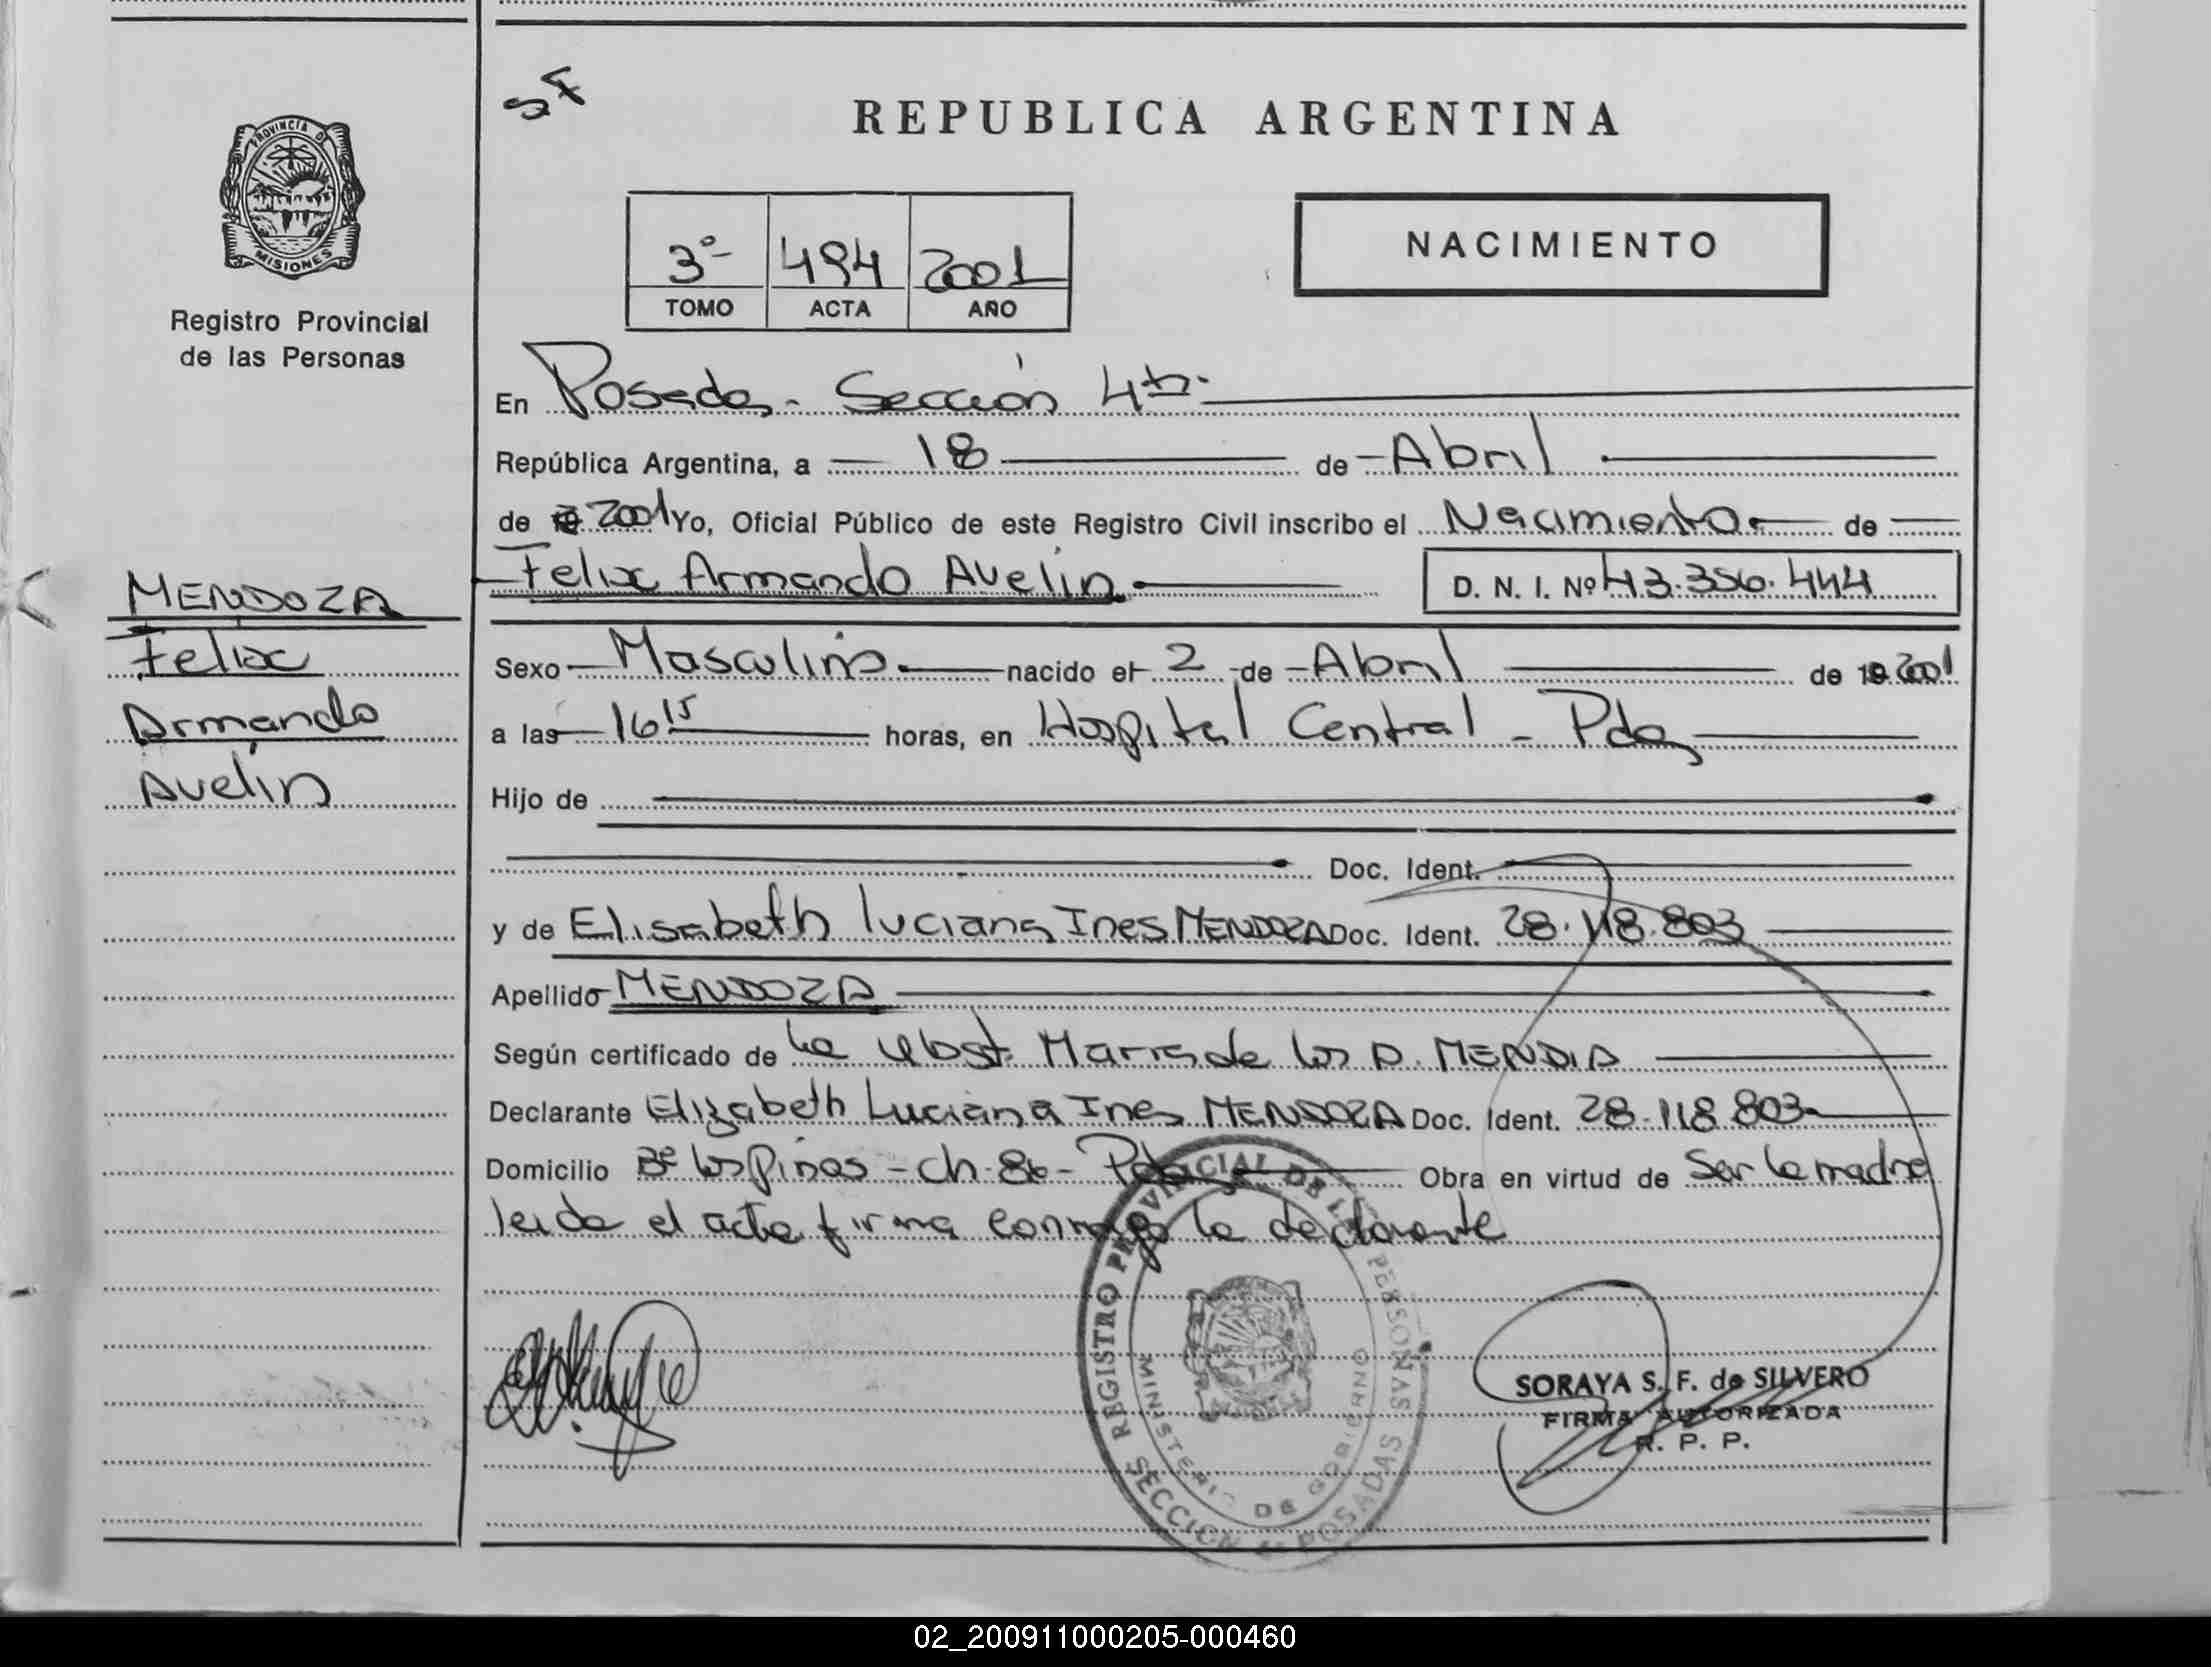 REPUBLICA ARGENTINA
PROVINCIA DE
MISIONES
Registro Provincial
de las Personas
3º 494 2001
TOMO ACTA AÑO
NACIMIENTO
En Posadas - Sección 4ta.
República Argentina, a 18 de Abril
de 2001 Yo, Oficial Público de este Registro Civil inscribo el Nacimiento de
Felix Armando Avelin D. N. I. Nº 43.356.444
MENDOZA
Felix
Armando
Avelin
Sexo Masculino nacido el 2 de Abril de 19 2001
a las 16 15 horas, en Hospital Central - Pdas
Hijo de
Doc. Ident.
y de Elisabeth Luciana Ines MENDOZA Doc. Ident. 28.118.803
Apellido MENDOZA
Según certificado de la Obst. Maria de los A. MENDIA
Declarante Elizabeth Luciana Ines MENDOZA Doc. Ident. 28.118.803
Domicilio Bº los Pinos - ch. 86 - Pdas Obra en virtud de Ser la madre
leida el acta firma conmigo la declarante
REGISTRO PROVINCIAL DE LAS PERSONAS
MINISTERIO DE GOBIERNO
SECCION 4ª POSADAS
SORAYA S. F. de SILVERO
FIRMA AUTORIZADA
R. P. P.
02_200911000205-000460